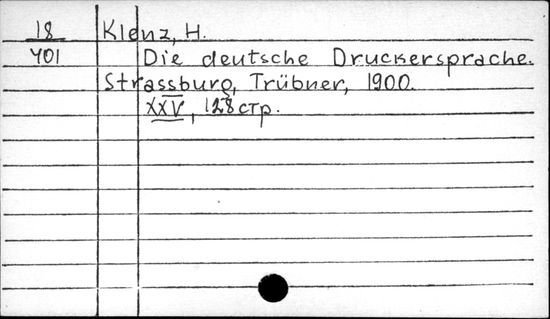 18 Klenz, H.
401 Die deutsche Druckersprache.
Strassburg, Trübner, 1900.
XXV, 128 стр.